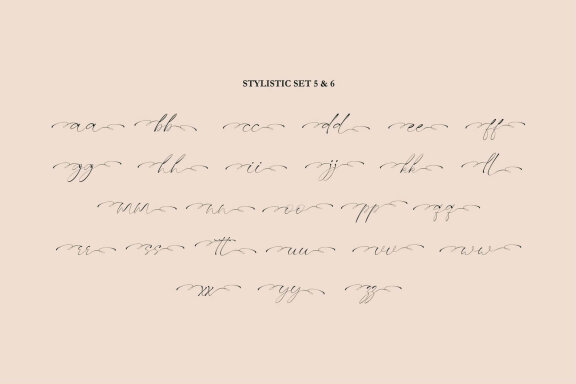 STYLISTIC SET 5 & 6
aa bb cc dd ee ff
gg hh ii jj kk ll
mm nn oo pp qq
rr ss tt uu vv ww
xx yy zz